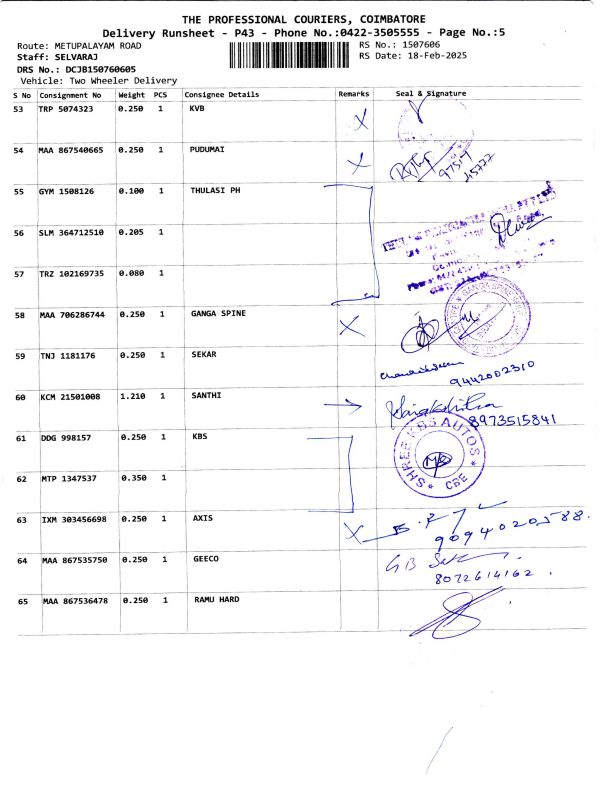 THE PROFESSIONAL COURIERS, COIMBATORE
Delivery Runsheet - P43 - Phone No.:0422-3505555 - Page No.:5
Route: METUPALAYAM ROAD
RS No.: 1507606
Staff: SELVARAJ
RS Date: 18-Feb-2025
DRS No.: DCJB150760605
Vehicle: Two Wheeler Delivery
S No Consignment No Weight PCS Consignee Details Remarks Seal & Signature
53 TRP 5074323 0.250 1 KVB X
54 MAA 867540665 0.250 1 PUDUMAI X
55 GYM 1508126 0.100 1 THULASI PH
56 SLM 364712510 0.205 1
57 TRZ 102169735 0.080 1
58 MAA 706286744 0.250 1 GANGA SPINE X
59 TNJ 1181176 0.250 1 SEKAR
9442002310
60 KCM 21501008 1.210 1 SANTHI
8973515841
61 DDG 998157 0.250 1 KBS
SHREE KBS AUTOS
CBE
62 MTP 1347537 0.350 1
63 IXM 303456698 0.250 1 AXIS X
9094020588.
64 MAA 867535750 0.250 1 GEECO
8072614162.
65 MAA 867536478 0.250 1 RAMU HARD